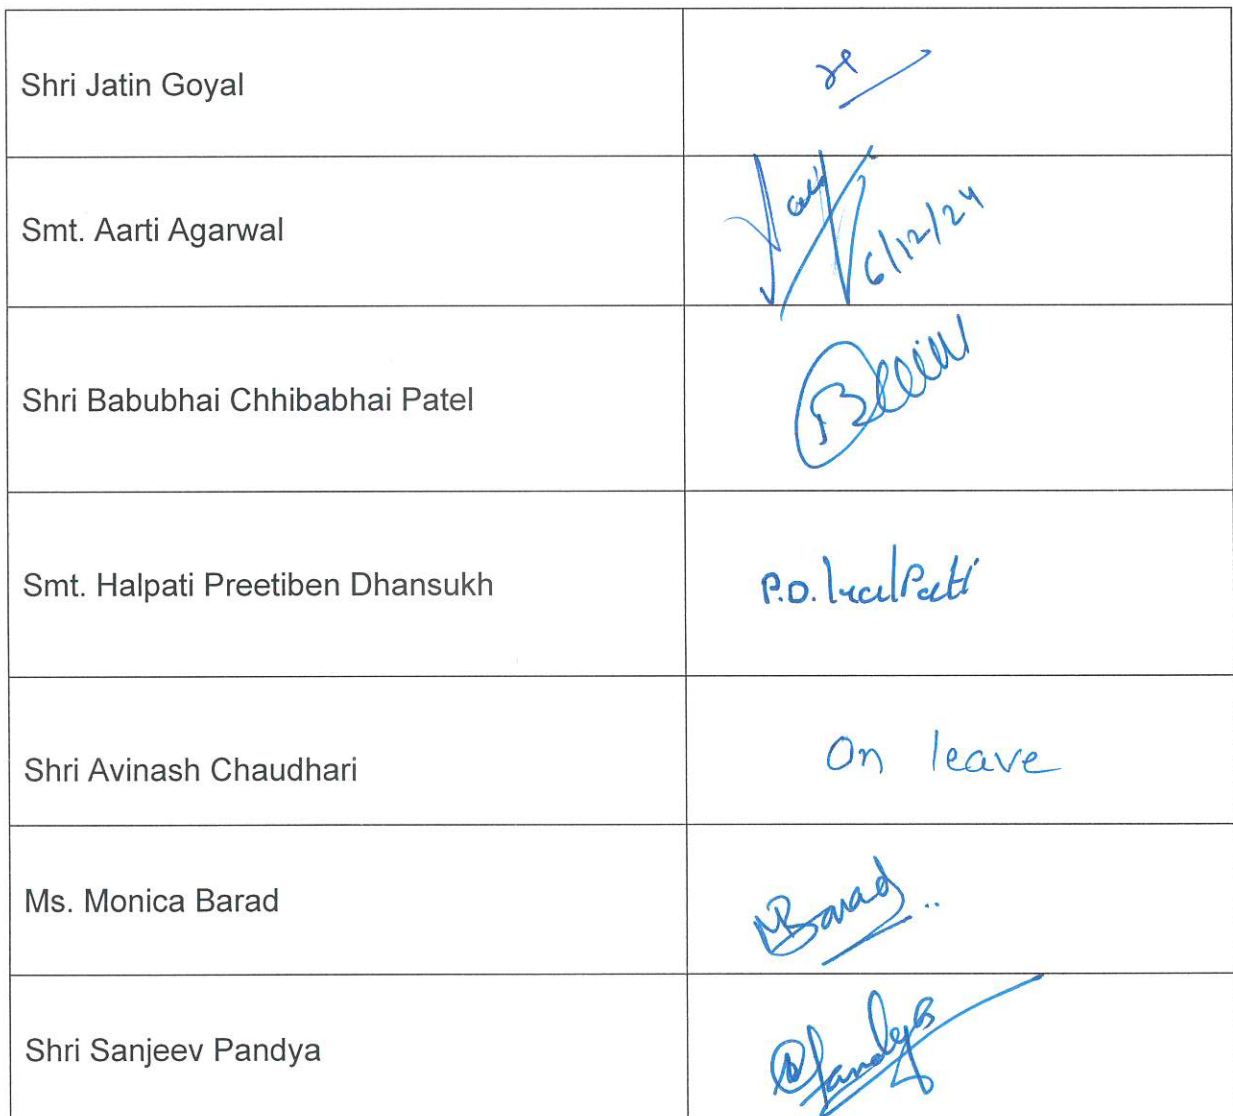 Shri Jatin Goyal
Smt. Aarti Agarwal
6/12/24
Shri Babubhai Chhibabhai Patel
Smt. Halpati Preetiben Dhansukh
P.D. HalPati
Shri Avinash Chaudhari
On leave
Ms. Monica Barad
MBarad
Shri Sanjeev Pandya